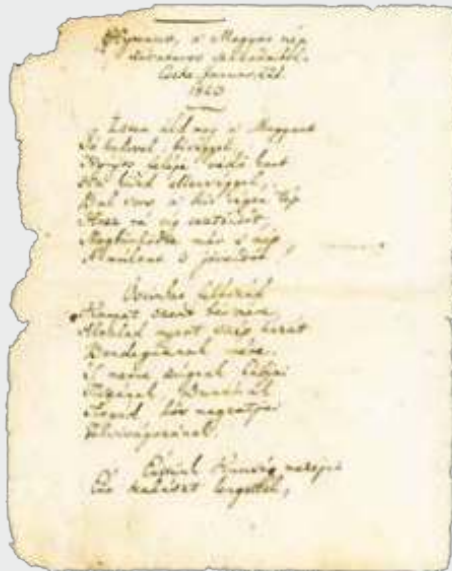 Hymnus, a' Magyar nép
zivataros századaiból.
Cseke, Januar. 22d.
1823
Isten áldd meg a' Magyart
Jó kedvvel, bőséggel,
Nyujts feléje védő kart
Ha küzd ellenséggel;
Bal sors a' kit régen tép
Hozz rá víg esztendőt,
Megbünhödte már e' nép
A' multat 's jövendőt.
Őseinket felhozád
Kárpát szent bérczére,
Általad nyert szép hazát
Bendegúznak vére.
'S merre zúgnak habjai
Tiszának, Dunának,
Árpád hős magzatjai
Felvirágozának.
Értünk Kunság mezein
Ért kalászt lengettél,